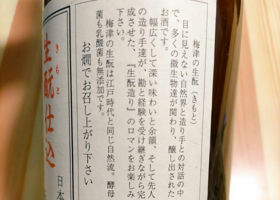 梅津の生酛(きもと)
目に見えない自然界と造り手との対話の中
で、多くの微生物達が関わり、醸し出された
お酒です。
幅広くて深い味わいと余韻、そして先人
の造り手達が、勘と経験を受け継ぎながら完
成させた、『生酛造り』のロマンをお楽しみ
下さい。
梅津の生酛は江戸時代と同じ自然流。酵母
菌も乳酸菌も無添加です。
お燗でお召し上がり下さい
きもと
生酛仕込
日本